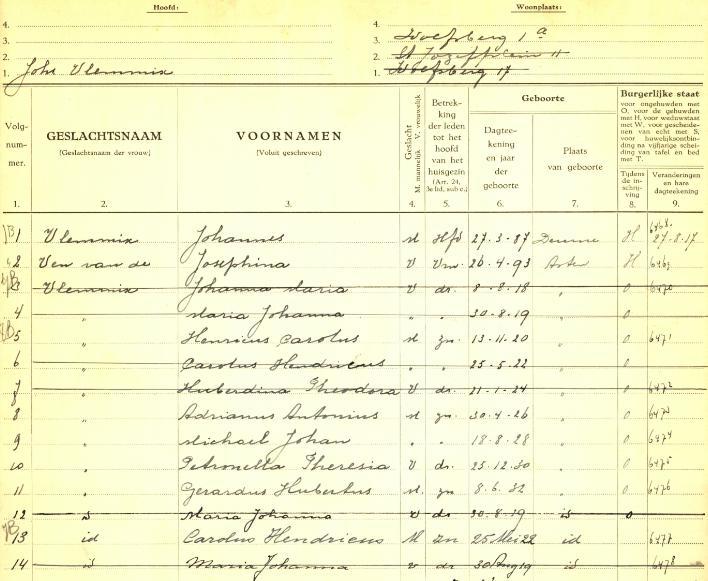 Hoofd:
Woonplaats:
4.
3.
2.
1. Johs Vlemmix
4.
3. Wolfsberg 1a
2. St Jozefplein 11
1. Wolfsberg 17
Volg-
num-
mer.
GESLACHTSNAAM
(Geslachtsnaam der vrouw)
VOORNAMEN
(Voluit geschreven)
Geslacht
M. mannelijk V. vrouwelijk
Betrek-
king
der leden
tot het
hoofd
van het
huisgezin
(Art. 24,
3e lid, sub c.)
Geboorte
Dagtee-
kening
en jaar
der
geboorte
Plaats
van geboorte
Burgerlijke staat
voor ongehuwden met
O, voor de gehuwden
met H, voor weduwstaat
met W, voor gescheide-
nen van echt met S,
voor huwelijksontbin-
ding na vijfjarige schei-
ding van tafel en bed
met T.
Tijdens
de in-
schrij-
ving
Veranderingen
en hare
dagteekening
1. 2. 3. 4. 5. 6. 7. 8. 9.
1 Vlemmix Johannes M Hfd 27-3-87 Deurne H 27-8-17
2 Ven van de Josephina V Vrw 26-4-93 Asten H 6469
3 Vlemmix Johanna Maria V dr. 8-8-18 „ o 6470
4 „ Maria Johanna „ „ 30-8-19 „ o
5 „ Henricus Carolus M zn. 13-11-20 „ o 6471
6 „ Carolus Hendricus „ „ 25-5-22 „ o
7 „ Huberdina Theodora V dr. 21-1-24 „ o 6472
8 „ Adrianus Antonius M zn. 30-4-26 „ o 6473
9 „ Michael Johan „ „ 18-8-28 „ o 6474
10 „ Petronella Theresia V dr. 25-12-30 „ o 6475
11 „ Gerardus Hubertus M. zn 8-6-32 „ o 6476
12 is Maria Johanna v dr 30-8-19 is o
13 id Carolus Hendricus M zn 25 Mei 22 id 6477
14 is Maria Johanna v dr 30 Aug 19 is 6478